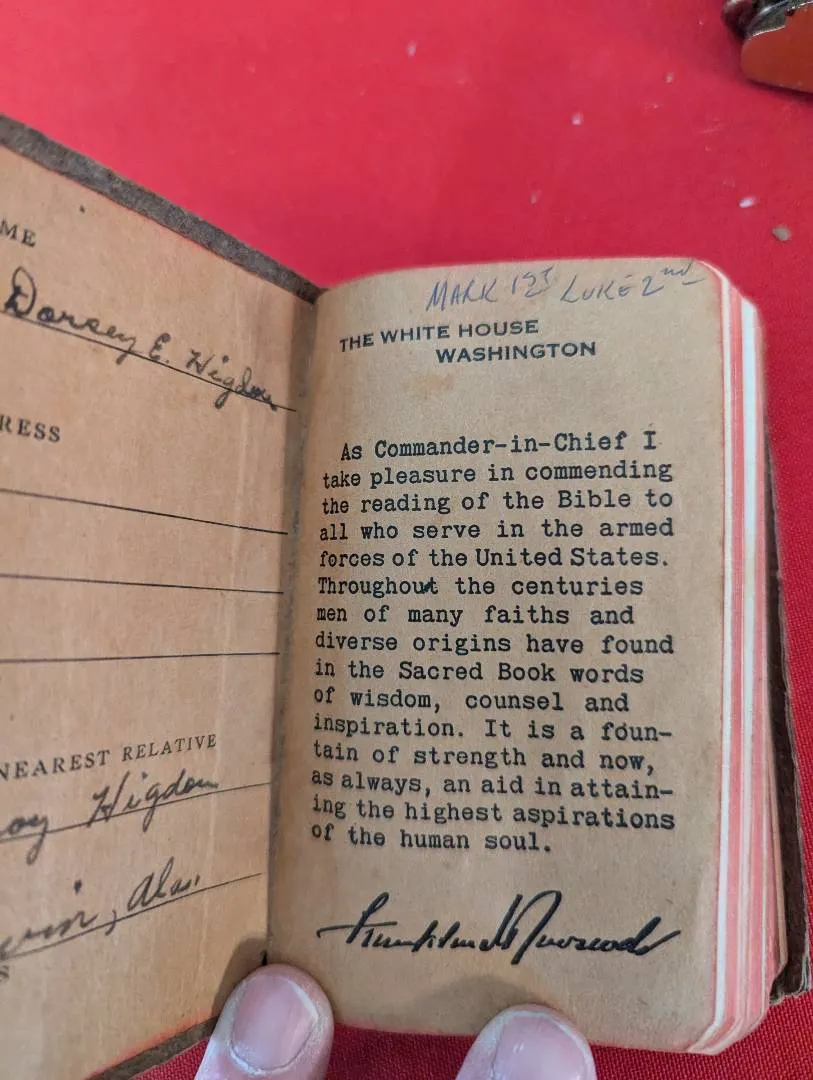 ME
Dorsey E. Higdon
RESS
NEAREST RELATIVE
oy Higdon
win, Ala.
S
MARK 1st LUKE 2nd
THE WHITE HOUSE
WASHINGTON
As Commander-in-Chief I
take pleasure in commending
the reading of the Bible to
all who serve in the armed
forces of the United States.
Throughout the centuries
men of many faiths and
diverse origins have found
in the Sacred Book words
of wisdom, counsel and
inspiration. It is a foun-
tain of strength and now,
as always, an aid in attain-
ing the highest aspirations
of the human soul.
Franklin D Roosevelt